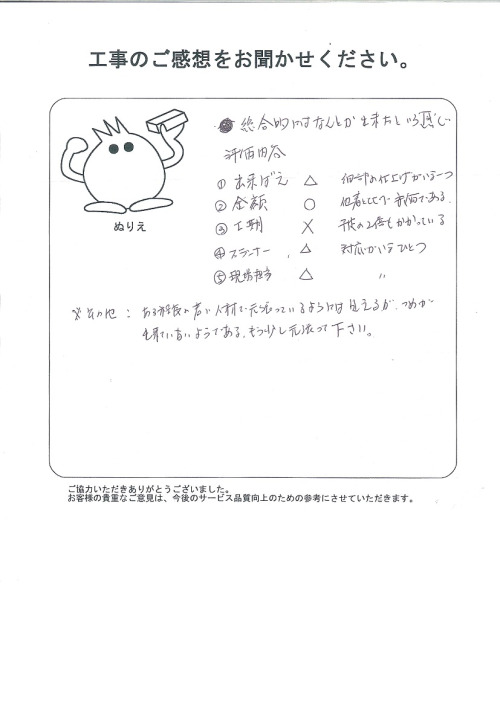 工事のご感想をお聞かせください。
ぬりえ
総合的にはなんとか出来たという感じ
評価内容
① 出来ばえ △ 細部の仕上げがいま一つ
② 金額 ○ 他者とくらべ安価である。
③ 工期 × 予定の2倍もかかっている
④ プランナー △ 対応がいまひとつ
⑤ 現場担当 △ 〃
※その他： ある程度の若い人材で頑張っているようには見えるが、つめが
出来ていないようである。もう少し頑張って下さい。
ご協力いただきありがとうございました。
お客様の貴重なご意見は、今後のサービス品質向上のための参考にさせていただきます。